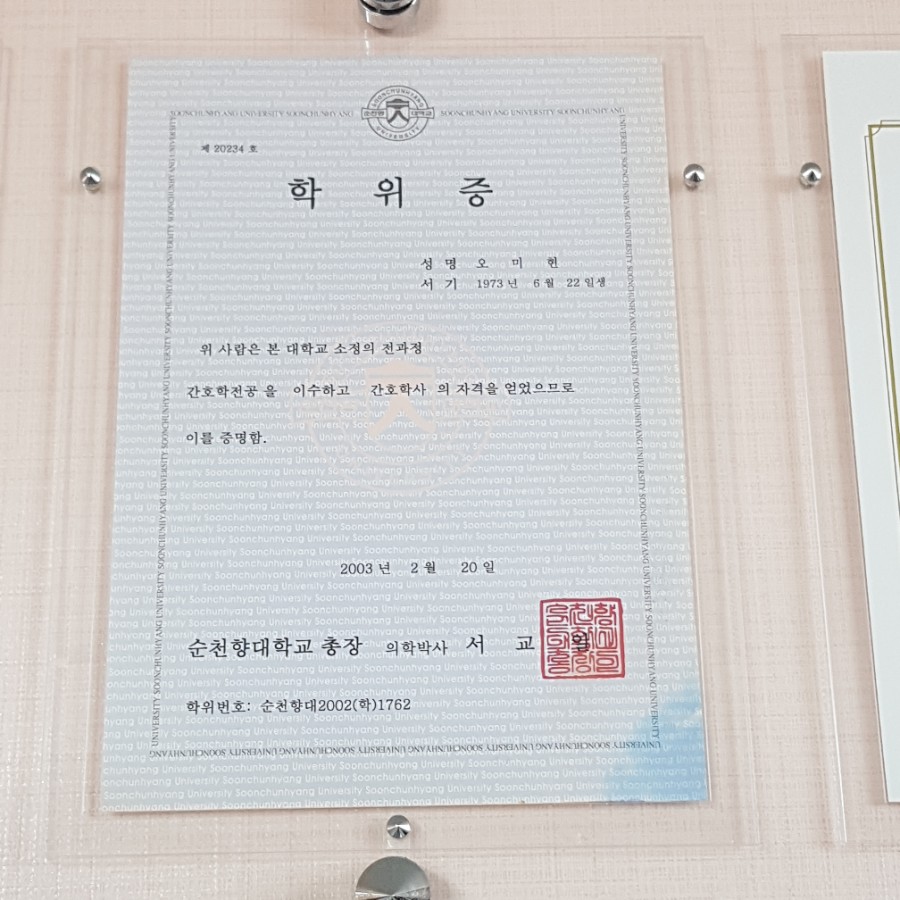 SOONCHUNHYANG UNIVERSITY
순천향 대학교
제 20234 호
학 위 증
성 명 오 미 헌
서 기 1973 년 6 월 22 일생
위 사람은 본 대학교 소정의 전과정
간호학전공 을 이수하고 간호학사 의 자격을 얻었으므로
이를 증명함.
2003 년 2 월 20 일
순천향대학교 총장 의학박사 서 교 일
학위번호: 순천향대2002(학)1762